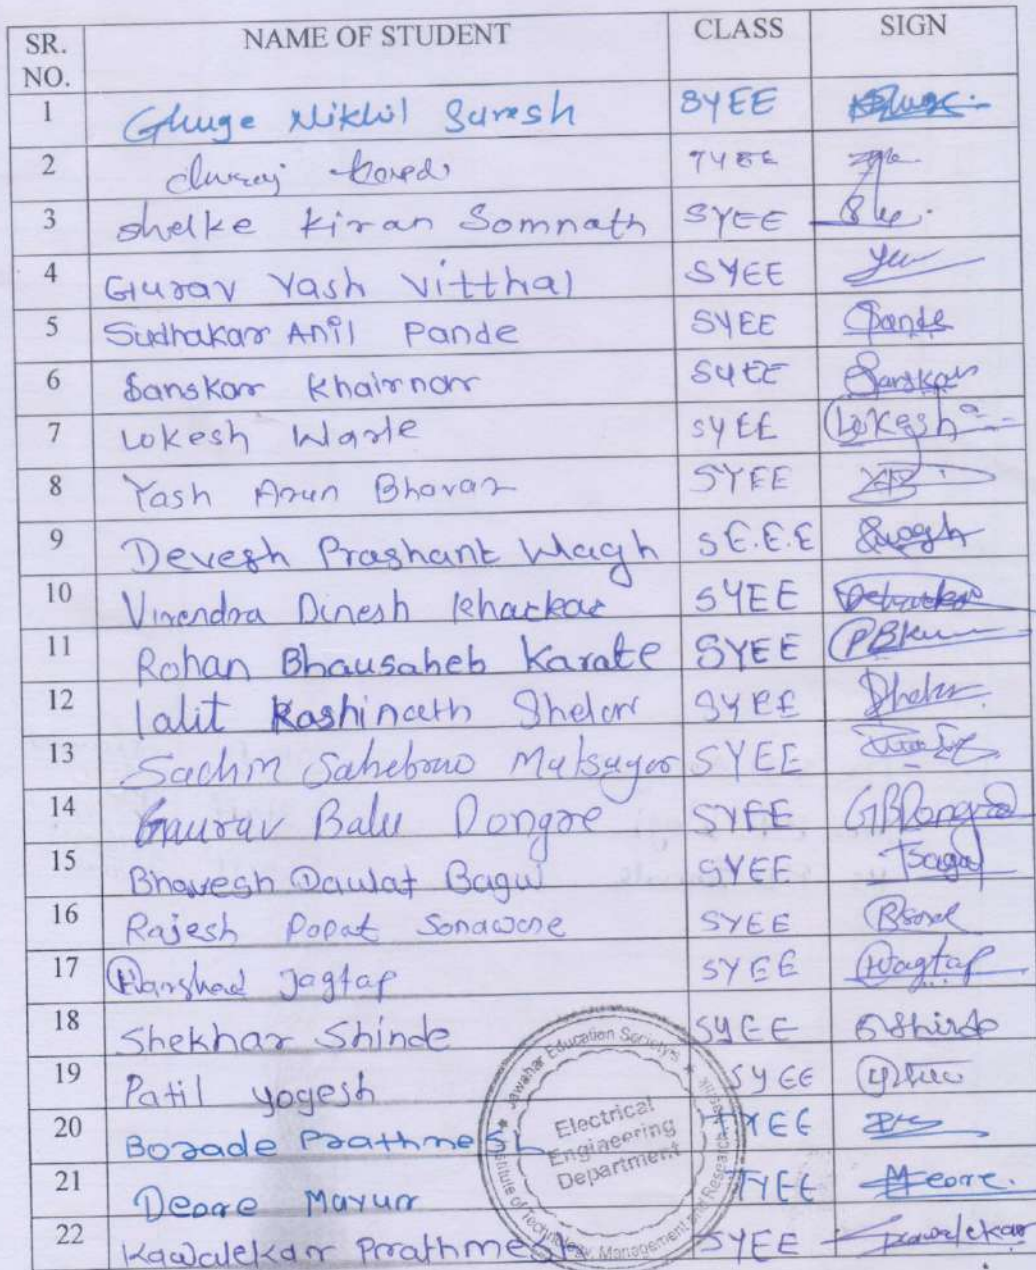 SR. NO. NAME OF STUDENT CLASS SIGN
1 Ghuge Nikhil Suresh SYEE
2 TYEE
3 Shelke Kiran Somnath SYEE
4 Gurav Yash Vitthal SYEE
5 Sudhakar Anil Pande SYEE Pande
6 Sanskar Khairnar SYEE Sanskar
7 Lokesh Warle SYEE Lokesh
8 Yash Arun Bhavar SYEE
9 Devesh Prashant Wagh S.E.E.E Dwagh
10 Virendra Dinesh Khairkar SYEE
11 Rohan Bhausaheb Karate SYEE
12 Lalit Kashinath Shelar SYEE Shelar
13 Sachin Sahebrao Matsagar SYEE
14 Gaurav Balu Dongre SYEE GBDongre
15 Bhavesh Dawlat Bagul SYEE Bagul
16 Rajesh Popat Sonawane SYEE
17 Harshad Jagtap SYEE HJagtap
18 Shekhar Shinde SYEE SShinde
19 Patil Yogesh SYEE
20 Borade Prathmesh TYEE
21 Deore Mayur TYEE MDeore
22 Kawalekar Prathmesh SYEE Kawalekar
Jawahar Education Society's
Electrical
Engineering
Department
Institute of Technology, Management and Research, Nashik